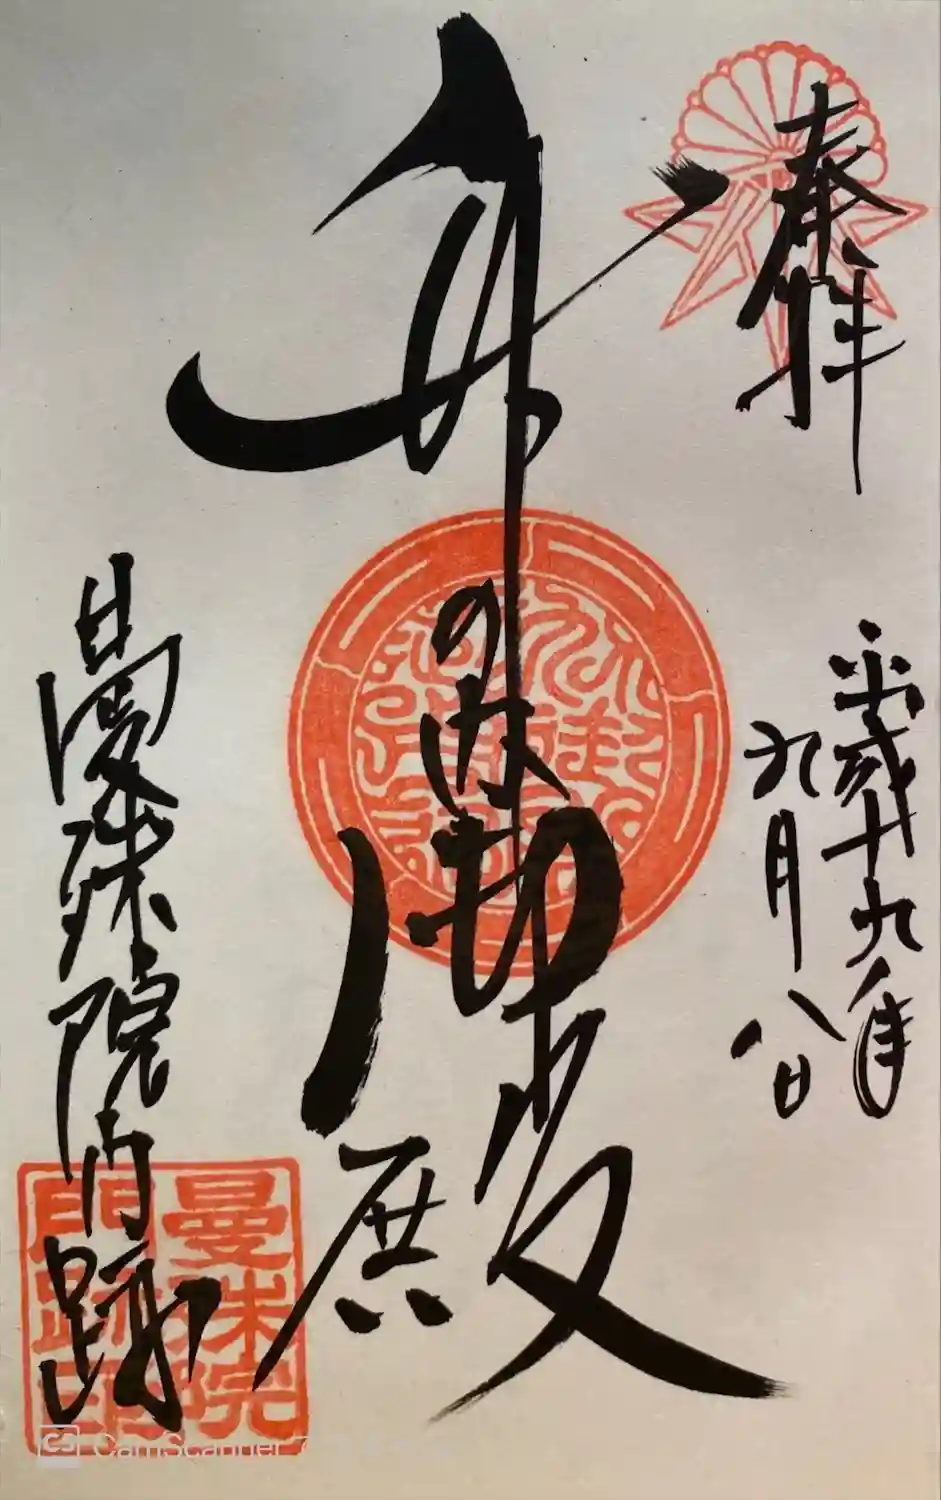 奉拝
平成十九年
九月八日
竹の内御殿
曼殊院門跡
曼殊院
門跡印
CamScanner